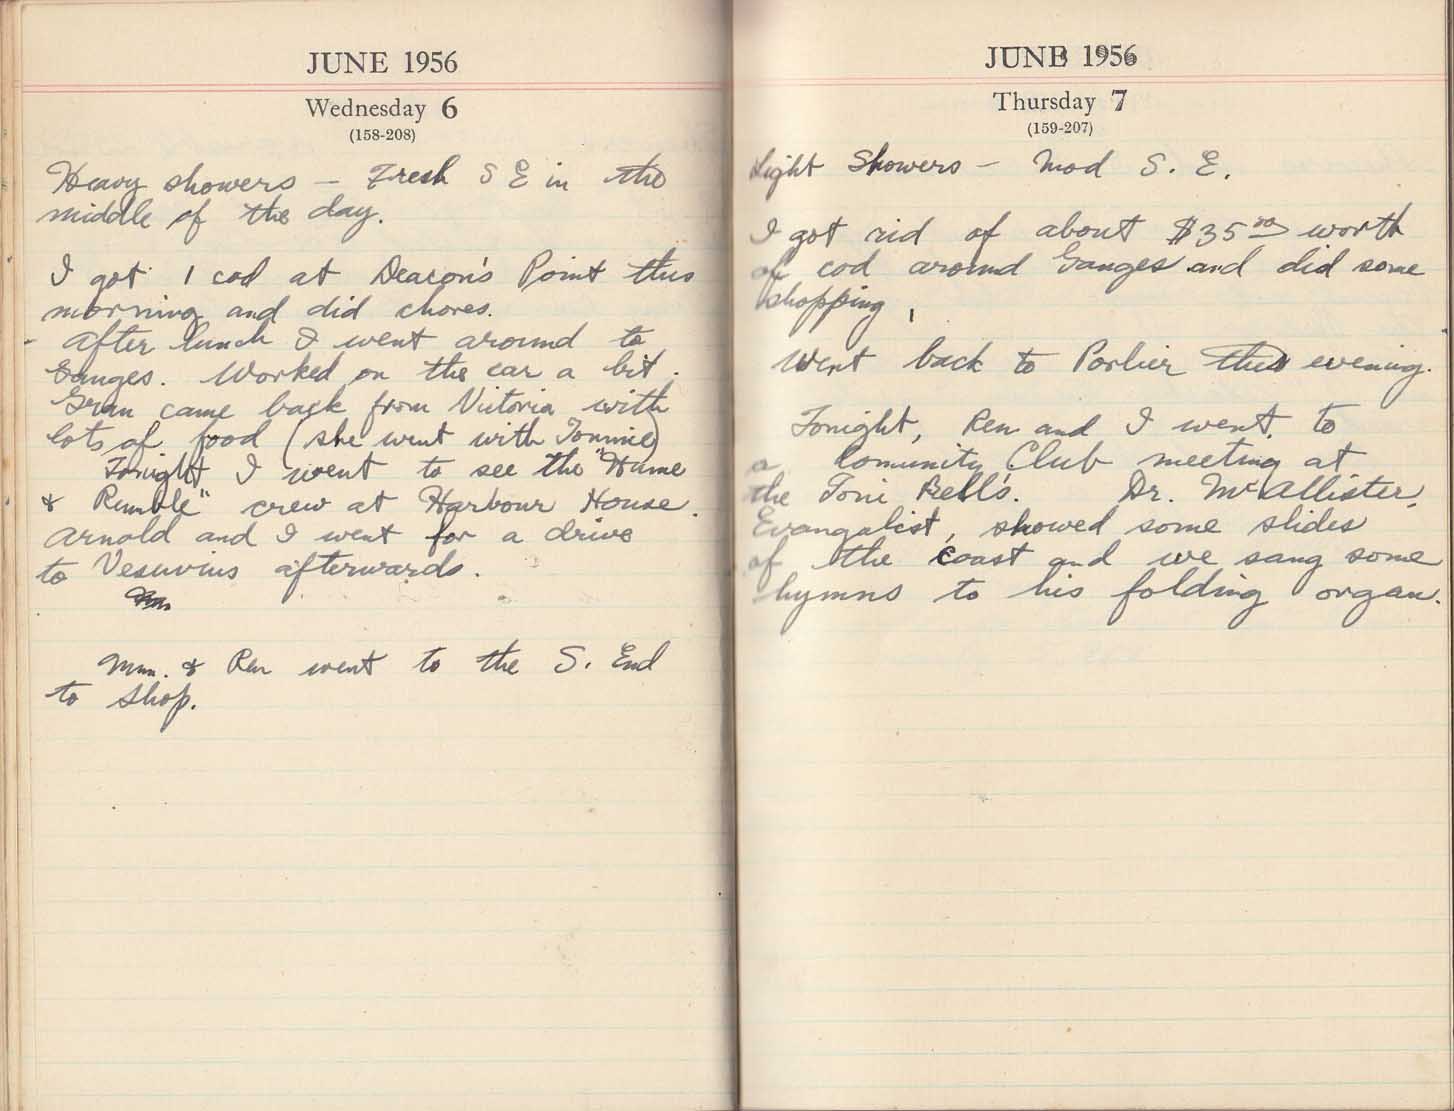 JUNE 1956
Wednesday 6
(158-208)
Heavy showers – Fresh S E in the
middle of the day.
I got 1 cod at Deacon's Point this
morning and did chores.
- After lunch I went around to
Ganges. Worked on the car a bit.
Gran came back from Victoria with
lots of food (she went with Tommie)
Tonight I went to see the "Hume
& Rumble" crew at Harbour House.
Arnold and I went for a drive
to Vesuvius afterwards.
Mum. & Ren went to the S. End
to shop.
JUNE 1956
Thursday 7
(159-207)
Light Showers – Mod S. E.
I got rid of about $35.00 worth
of cod around Ganges and did some
shopping.
Went back to Porlier this evening.
Tonight, Ren and I went to
a Comunity Club meeting at
the Toni Bell's. Dr. McAllister,
Evangalist, showed some slides
of the coast and we sang some
hymns to his folding organ.